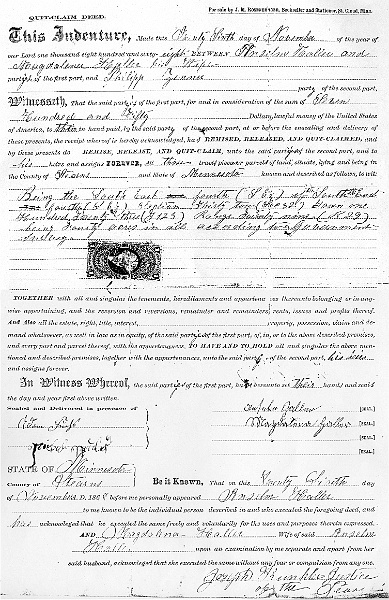 For sale by J. R. , Bookseller and Stationer, St. Cloud, Minn.
QUIT-CLAIM DEED.
This Indenture, Made this Twenty Sixth day of November in the year of
our Lord one thousand eight hundred and sixty-eight BETWEEN Anselm and
Magdalena his Wife
parties of the first part, and Philipp
party of the second part,
Witnesseth, That the said parties of the first part, for and in consideration of the sum of
Hundred and Fifty Dollars, lawful money of the United States
of America, to in hand paid, by the said party of the second part, at or before the ensealing and delivery of
these presents, the receipt whereof is hereby acknowledged, have REMISED, RELEASED, AND QUIT-CLAIMED, and by these presents
do REMISE, RELEASE, AND QUIT-CLAIM, unto the said party of the second part, and to
his heirs and assigns FOREVER, all those tracts pieces or parcels of land, situate, lying and being in
the County of Stearns and State of Minnesota known and described as follows, to wit:
Being the South East fourth of South East
fourth Section Thirty two Town one
Hundred Twenty three (T 123) Range twenty nine (R 29)
being Forty acres in all according to Government
Survey
TOGETHER with all and singular the tenements, hereditaments and appurtenances thereunto belonging or in any-
wise appertaining, and the reversion and reversions, remainder and remainders, rents, issues and profits thereof.
And also all the estate, right, title, interest, property, possession, claim and de-
mand whatsoever, as well in law as in equity, of the said parties of the first part, of, in, or to the above described premises,
and every part and parcel thereof, with the appurtenances, TO HAVE AND TO HOLD all and singular the above men-
tioned and described premises, together with the appurtenances, unto the said party of the second part, his heirs
and assigns forever.
In Witness Whereof, the said parties of the first part, have hereunto set their hands and seals
the day and year first above written.
Sealed and Delivered in presence of [SEAL.]
[SEAL.]
[SEAL.]
STATE OF Minnesota
County of Stearns Be it Known, That on this Twenty Sixth day of
November A. D. 186 before me personally appeared Anselm
to me known to be the individual person described in and who executed the foregoing deed, and
has acknowledged that he executed the same freely and voluntarily for the uses and purposes therein expressed.
AND Magdalena Wife of said Anselm
upon an examination by me separate and apart from her
said husband, acknowledged that she executed the same without any fear or compulsion from any one.
Joseph Justice
of the Peace